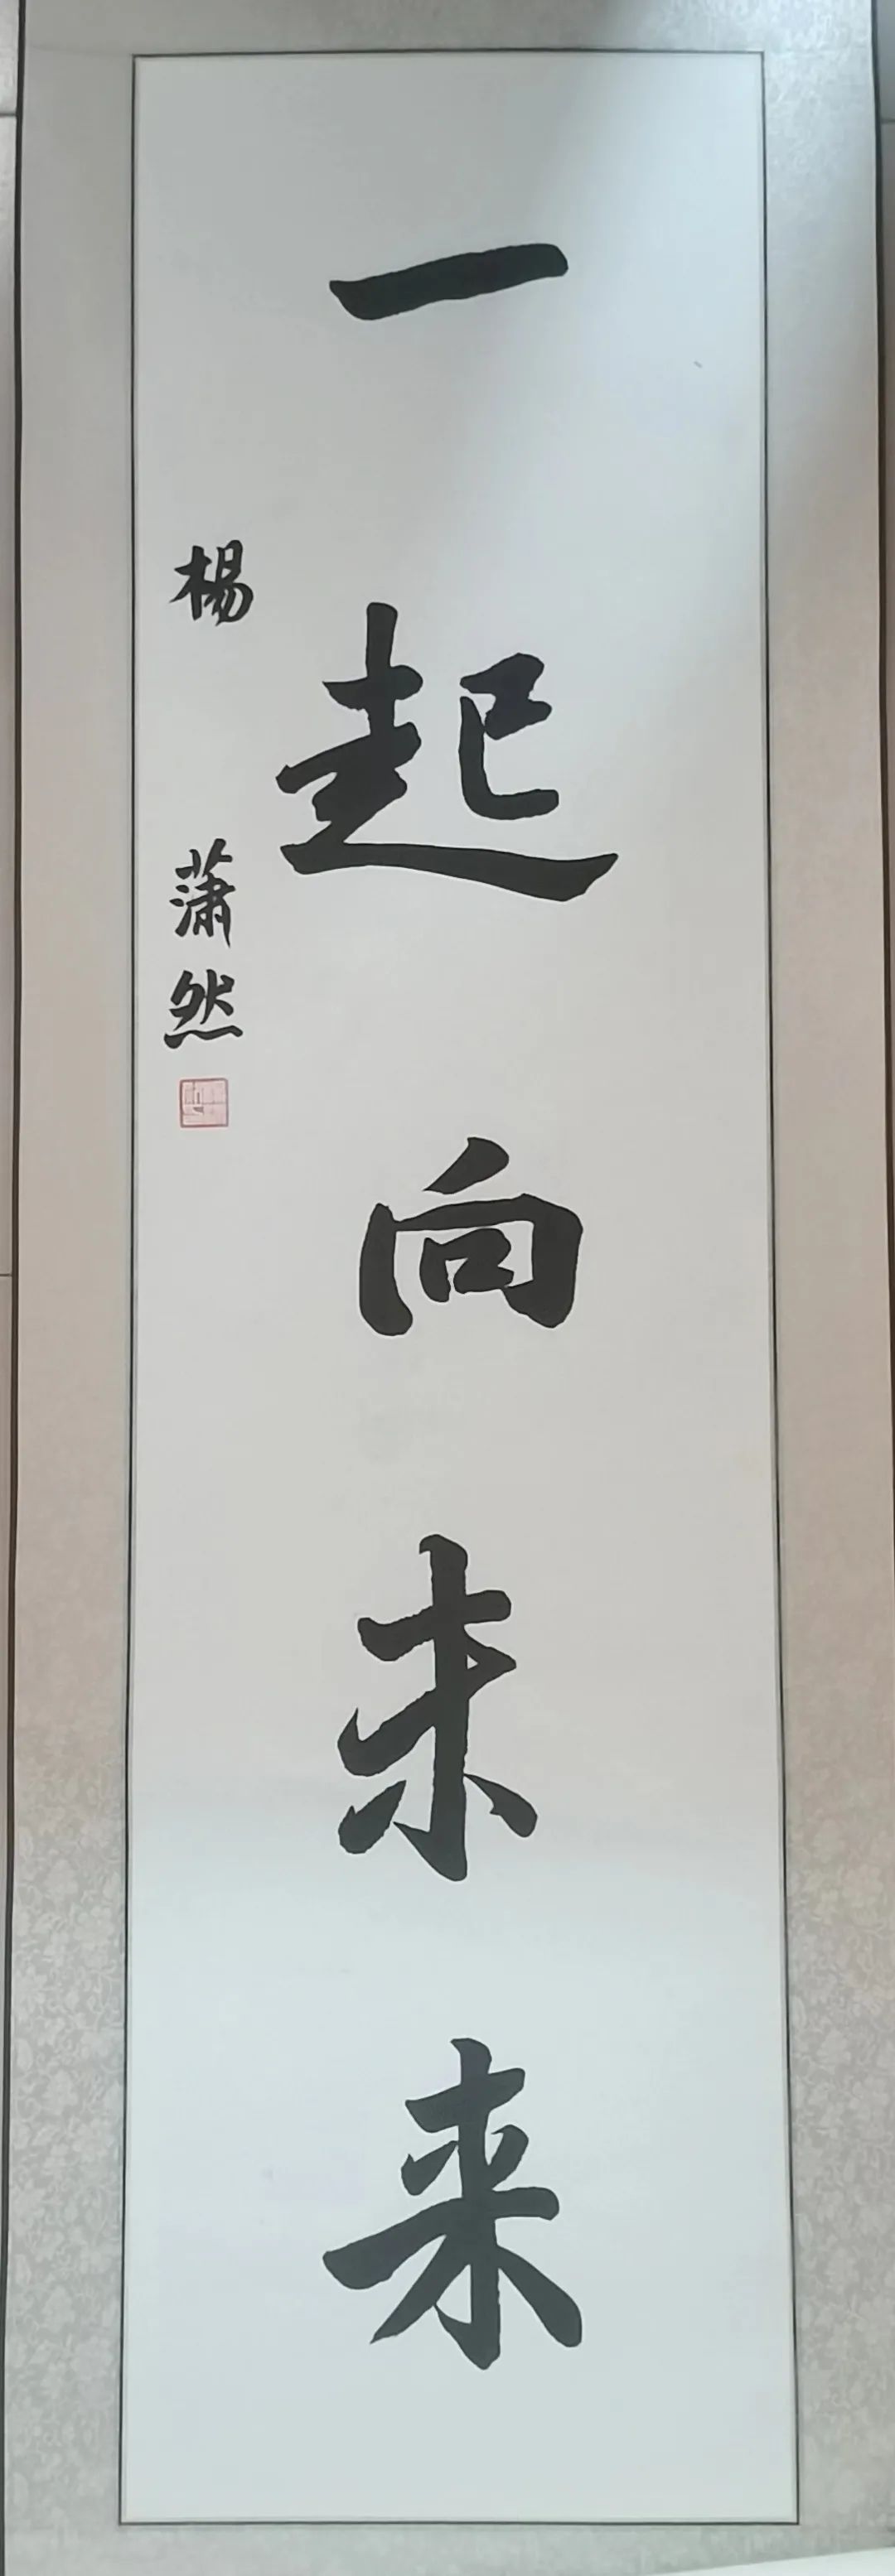 一起向未来
楊 潇然